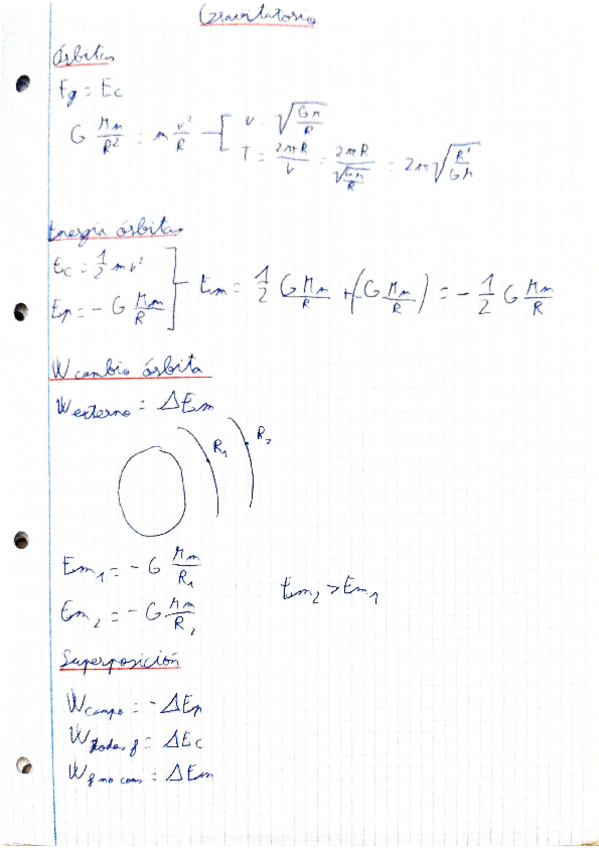 Gravitatorio
órbitas
Fg = Ec
G Mm/R² = m v²/R → [ v = √(GM/R)
T = 2πR/v = 2πR/√(GM/R) = 2π√(R³/GM)
Energía órbitas
Ec = 1/2 mv²
Ep = - G Mm/R ] - Em = 1/2 G Mm/R + (G Mm/R) = - 1/2 G Mm/R
W cambio órbita
W externo = ΔEm
R₁ R₂
Em₁ = - G Mm/R₁
Em₂ = - G Mm/R₂
Em₂ > Em₁
Superposición
W campo = - ΔEp
W todas f = ΔEc
W f no cons = ΔEm